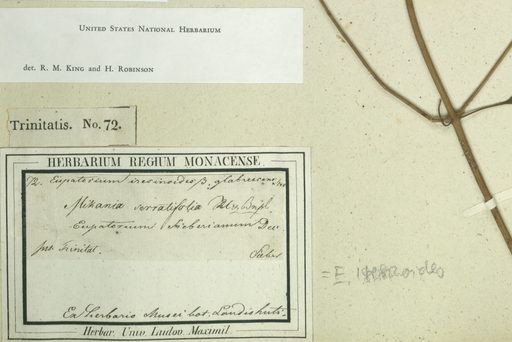 UNITED STATES NATIONAL HERBARIUM
det. R. M. KING and H. ROBINSON
Trinitatis. No. 72.
HERBARIUM REGIUM MONACENSE
72. Eupatorium iresinoides β. glabrescens
Mikania serratifolia
Eupatorium Sieberianum Dec
Ins. Trinitat.
Sieber
= E. iresinoides
Ex herbario Musei bot. Landishuti
Herbar. Univ. Ludov. Maximil.